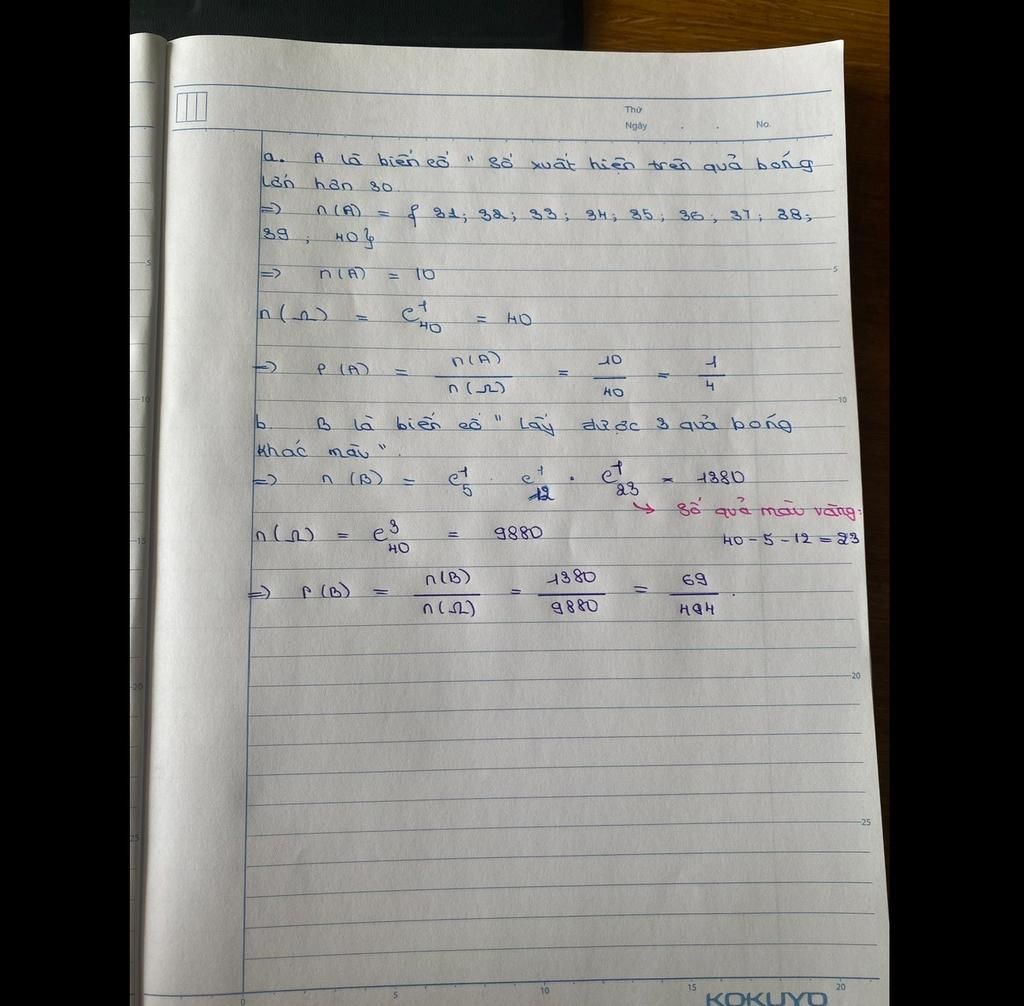 Thứ
Ngày . . No.
a. A là biến cố " số xuất hiện trên quả bóng
lớn hơn 30.
=> n(A) = { 31; 32; 33; 34; 35; 36; 37; 38;
39; 40}
=> n(A) = 10
n(Ω) = C¹₄₀ = 40
=> P(A) = n(A)/n(Ω) = 10/40 = 1/4
b. B là biến cố " Lấy được 3 quả bóng
khác màu".
=> n(B) = C¹₅ . C¹₁₂ . C¹₂₃ = 1380
↪ số quả màu vàng:
40 - 5 - 12 = 23
n(Ω) = C³₄₀ = 9880
=> P(B) = n(B)/n(Ω) = 1380/9880 = 69/494.
5
5
10
10
15
15
20
20
25
25
0 5 10 15 20
KOKUYO